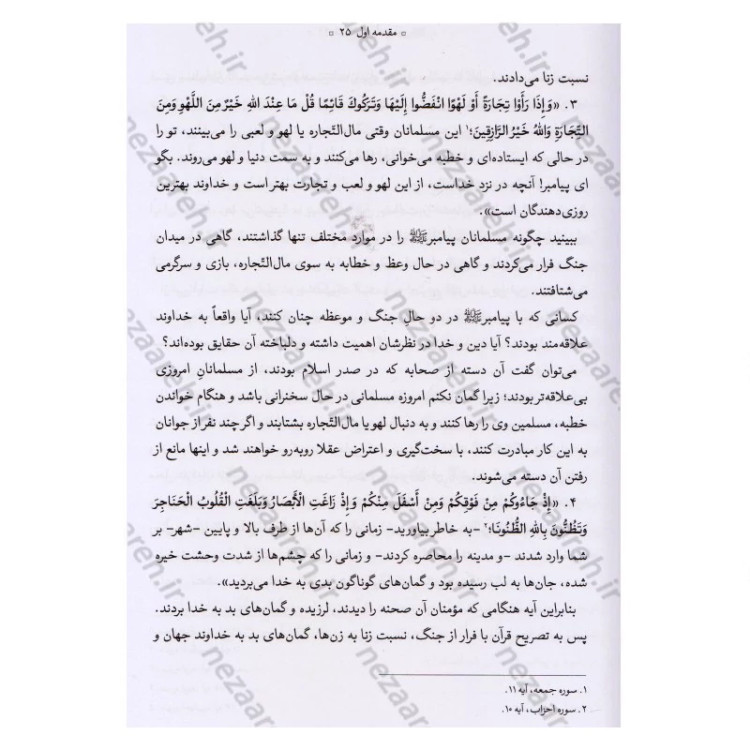 ▫ مقدمه اول ۲۵ ▫
نسبت زنا می‌دادند.
۳. «وَإِذَا رَأَوْا تِجَارَةً أَوْ لَهْوًا انْفَضُّوا إِلَيْهَا وَتَرَكُوكَ قَائِمًا قُلْ مَا عِنْدَ اللهِ خَيْرٌ مِنَ اللَّهْوِ وَمِنَ
التِّجَارَةِ وَاللهُ خَيْرُ الرَّازِقِينَ؛۱ این مسلمانان وقتی مال‌التّجاره یا لهو و لعبی را می‌بینند، تو را
در حالی که ایستاده‌ای و خطبه می‌خوانی، رها می‌کنند و به سمت دنیا و لهو می‌روند. بگو
ای پیامبر! آنچه در نزد خداست، از این لهو و لعب و تجارت بهتر است و خداوند بهترین
روزی‌دهندگان است».
ببینید چگونه مسلمانان پیامبرﷺ را در موارد مختلف تنها گذاشتند، گاهی در میدان
جنگ فرار می‌کردند و گاهی در حال وعظ و خطابه به سوی مال‌التّجاره، بازی و سرگرمی
می‌شتافتند.
کسانی که با پیامبرﷺ در دو حالِ جنگ و موعظه چنان کنند، آیا واقعاً به خداوند
علاقه‌مند بودند؟ آیا دین و خدا در نظرشان اهمیت داشته و دلباخته آن حقایق بوده‌اند؟
می‌توان گفت آن دسته از صحابه که در صدر اسلام بودند، از مسلمانانِ امروزی
بی‌علاقه‌تر بودند؛ زیرا گمان نکنم امروزه مسلمانی در حال سخنرانی باشد و هنگام خواندن
خطبه، مسلمین وی را رها کنند و به دنبال لهو یا مال‌التّجاره بشتابند و اگر چند نفر از جوانان
به این کار مبادرت کنند، با سخت‌گیری و اعتراض عقلا روبه‌رو خواهند شد و اینها مانع از
رفتن آن دسته می‌شوند.
۴. «إِذْ جَاءُوكُمْ مِنْ فَوْقِكُمْ وَمِنْ أَسْفَلَ مِنْكُمْ وَإِذْ زَاغَتِ الْأَبْصَارُ وَبَلَغَتِ الْقُلُوبُ الْحَنَاجِرَ
وَتَظُنُّونَ بِاللهِ الظُّنُونَا؛۲ -به خاطر بیاورید- زمانی را که آن‌ها از طرف بالا و پایین -شهر- بر
شما وارد شدند -و مدینه را محاصره کردند- و زمانی را که چشم‌ها از شدت وحشت خیره
شده، جان‌ها به لب رسیده بود و گمان‌های گوناگون بدی به خدا می‌بردید».
بنابراین آیه هنگامی که مؤمنان آن صحنه را دیدند، لرزیده و گمان‌های بد به خدا بردند.
پس به تصریح قرآن با فرار از جنگ، نسبت زنا به زن‌ها، گمان‌های بد به خداوند جهان و
۱. سوره جمعه، آیه ۱۱.
۲. سوره احزاب، آیه ۱۰.
nezaareh.ir